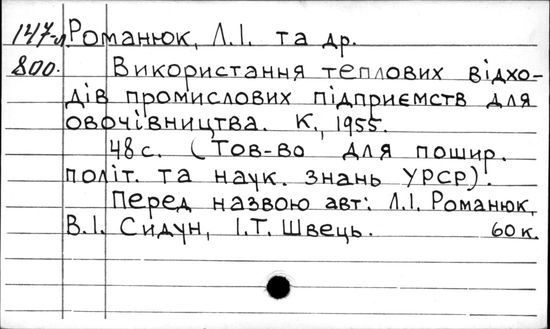 147-л Романюк, Л.І. та др.
800. Використання теплових відхо-
дів промислових підприємств для
овочівництва. К., 1955.
48 с. (Тов-во для пошир.
політ. та наук. знань УРСР).
Перед назвою авт: Л.І. Романюк,
В.І. Сидун, І.Т. Швець. 60 к.